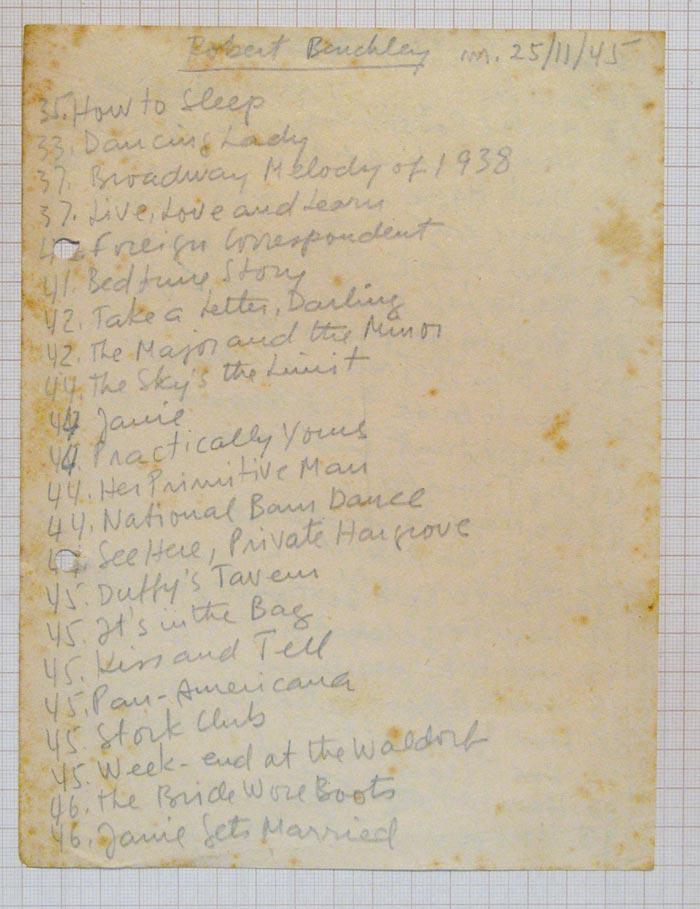 Robert Benchley m. 25/11/45
35. How to Sleep
33. Dancing Lady
37. Broadway Melody of 1938
37. Live, Love and Learn
Foreign Correspondent
41. Bedtime Story
42. Take a Letter, Darling
42. The Major and the Minor
44. The Sky's the Limit
44. Janie
44. Practically Yours
44. Her Primitive Man
44. National Barn Dance
See Here, Private Hargrove
45. Duffy's Tavern
45. It's in the Bag
45. Kiss and Tell
45. Pan-Americana
45. Stork Club
45. Week-end at the Waldorf
46. The Bride Wore Boots
46. Janie Gets Married